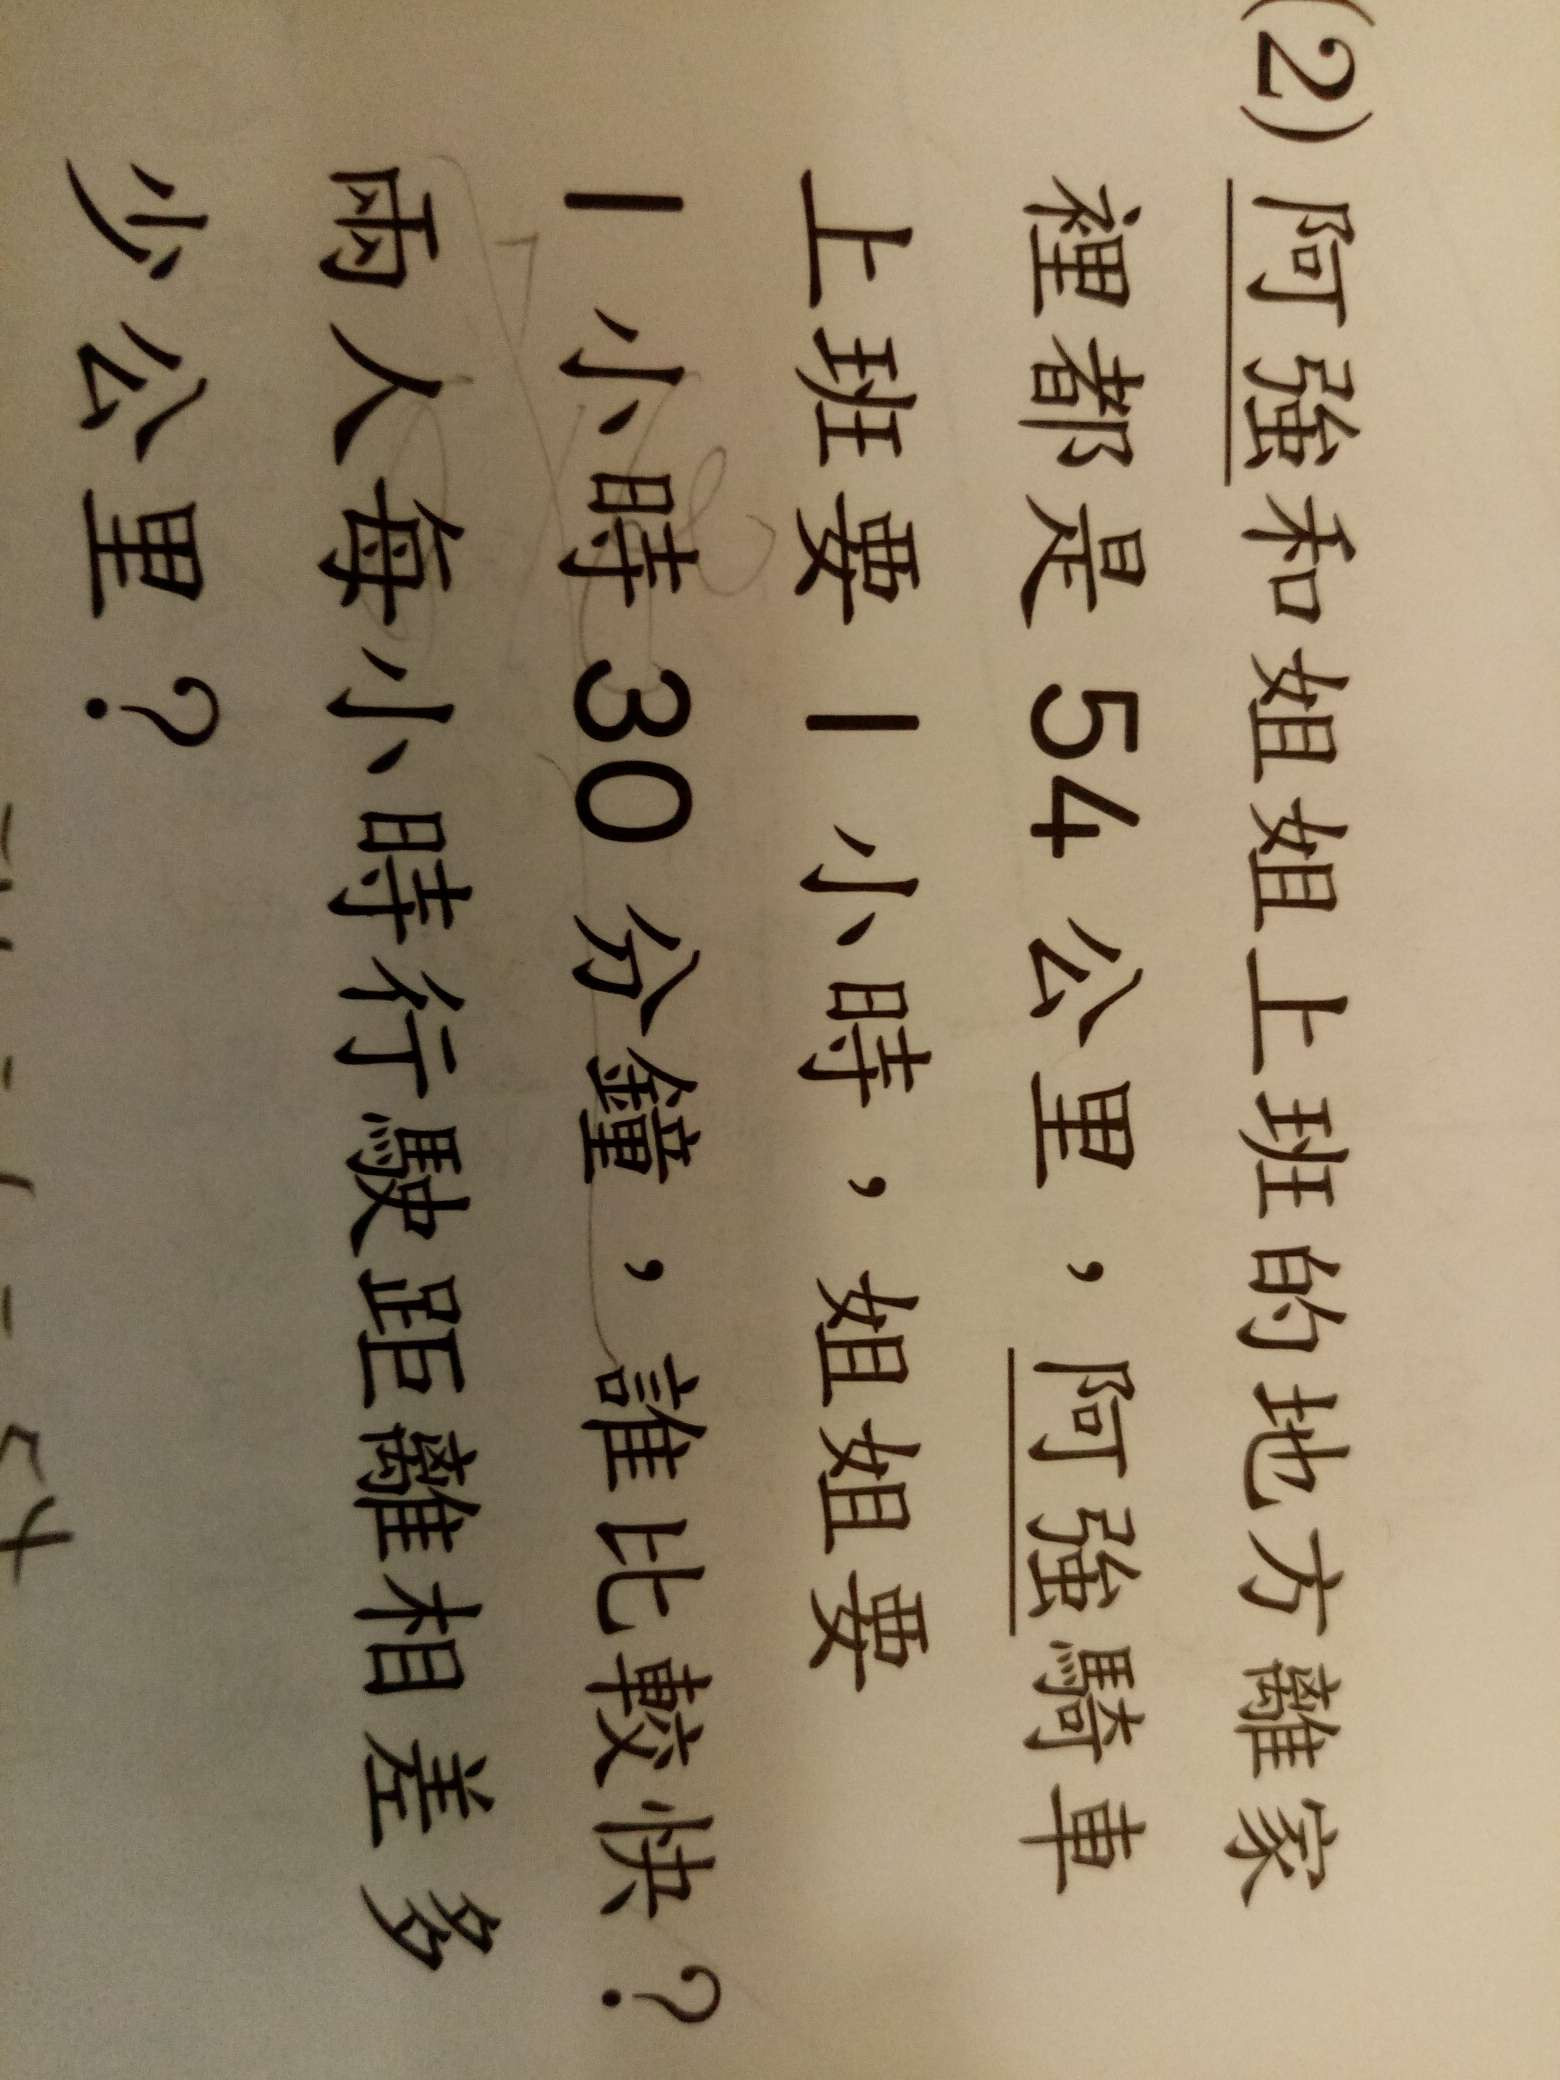 (2) 阿強和姐姐上班的地方離家
裡都是 54 公里，阿強騎車
上班要 1 小時，姐姐要
1 小時 30 分鐘，誰比較快？
兩人每小時行駛距離相差多
少公里？
54